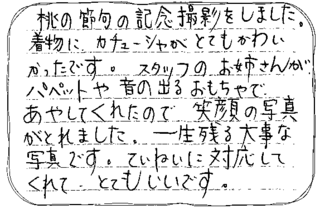 桃の節句の記念撮影をしました。
着物に、カチューシャがとてもかわい
かったです。 スタッフのお姉さんが、
パペットや音の出るおもちゃで
あやしてくれたので 笑顔の写真
がとれました。 一生残る大事な
写真です。ていねいに対応して
くれて とてもいいです。